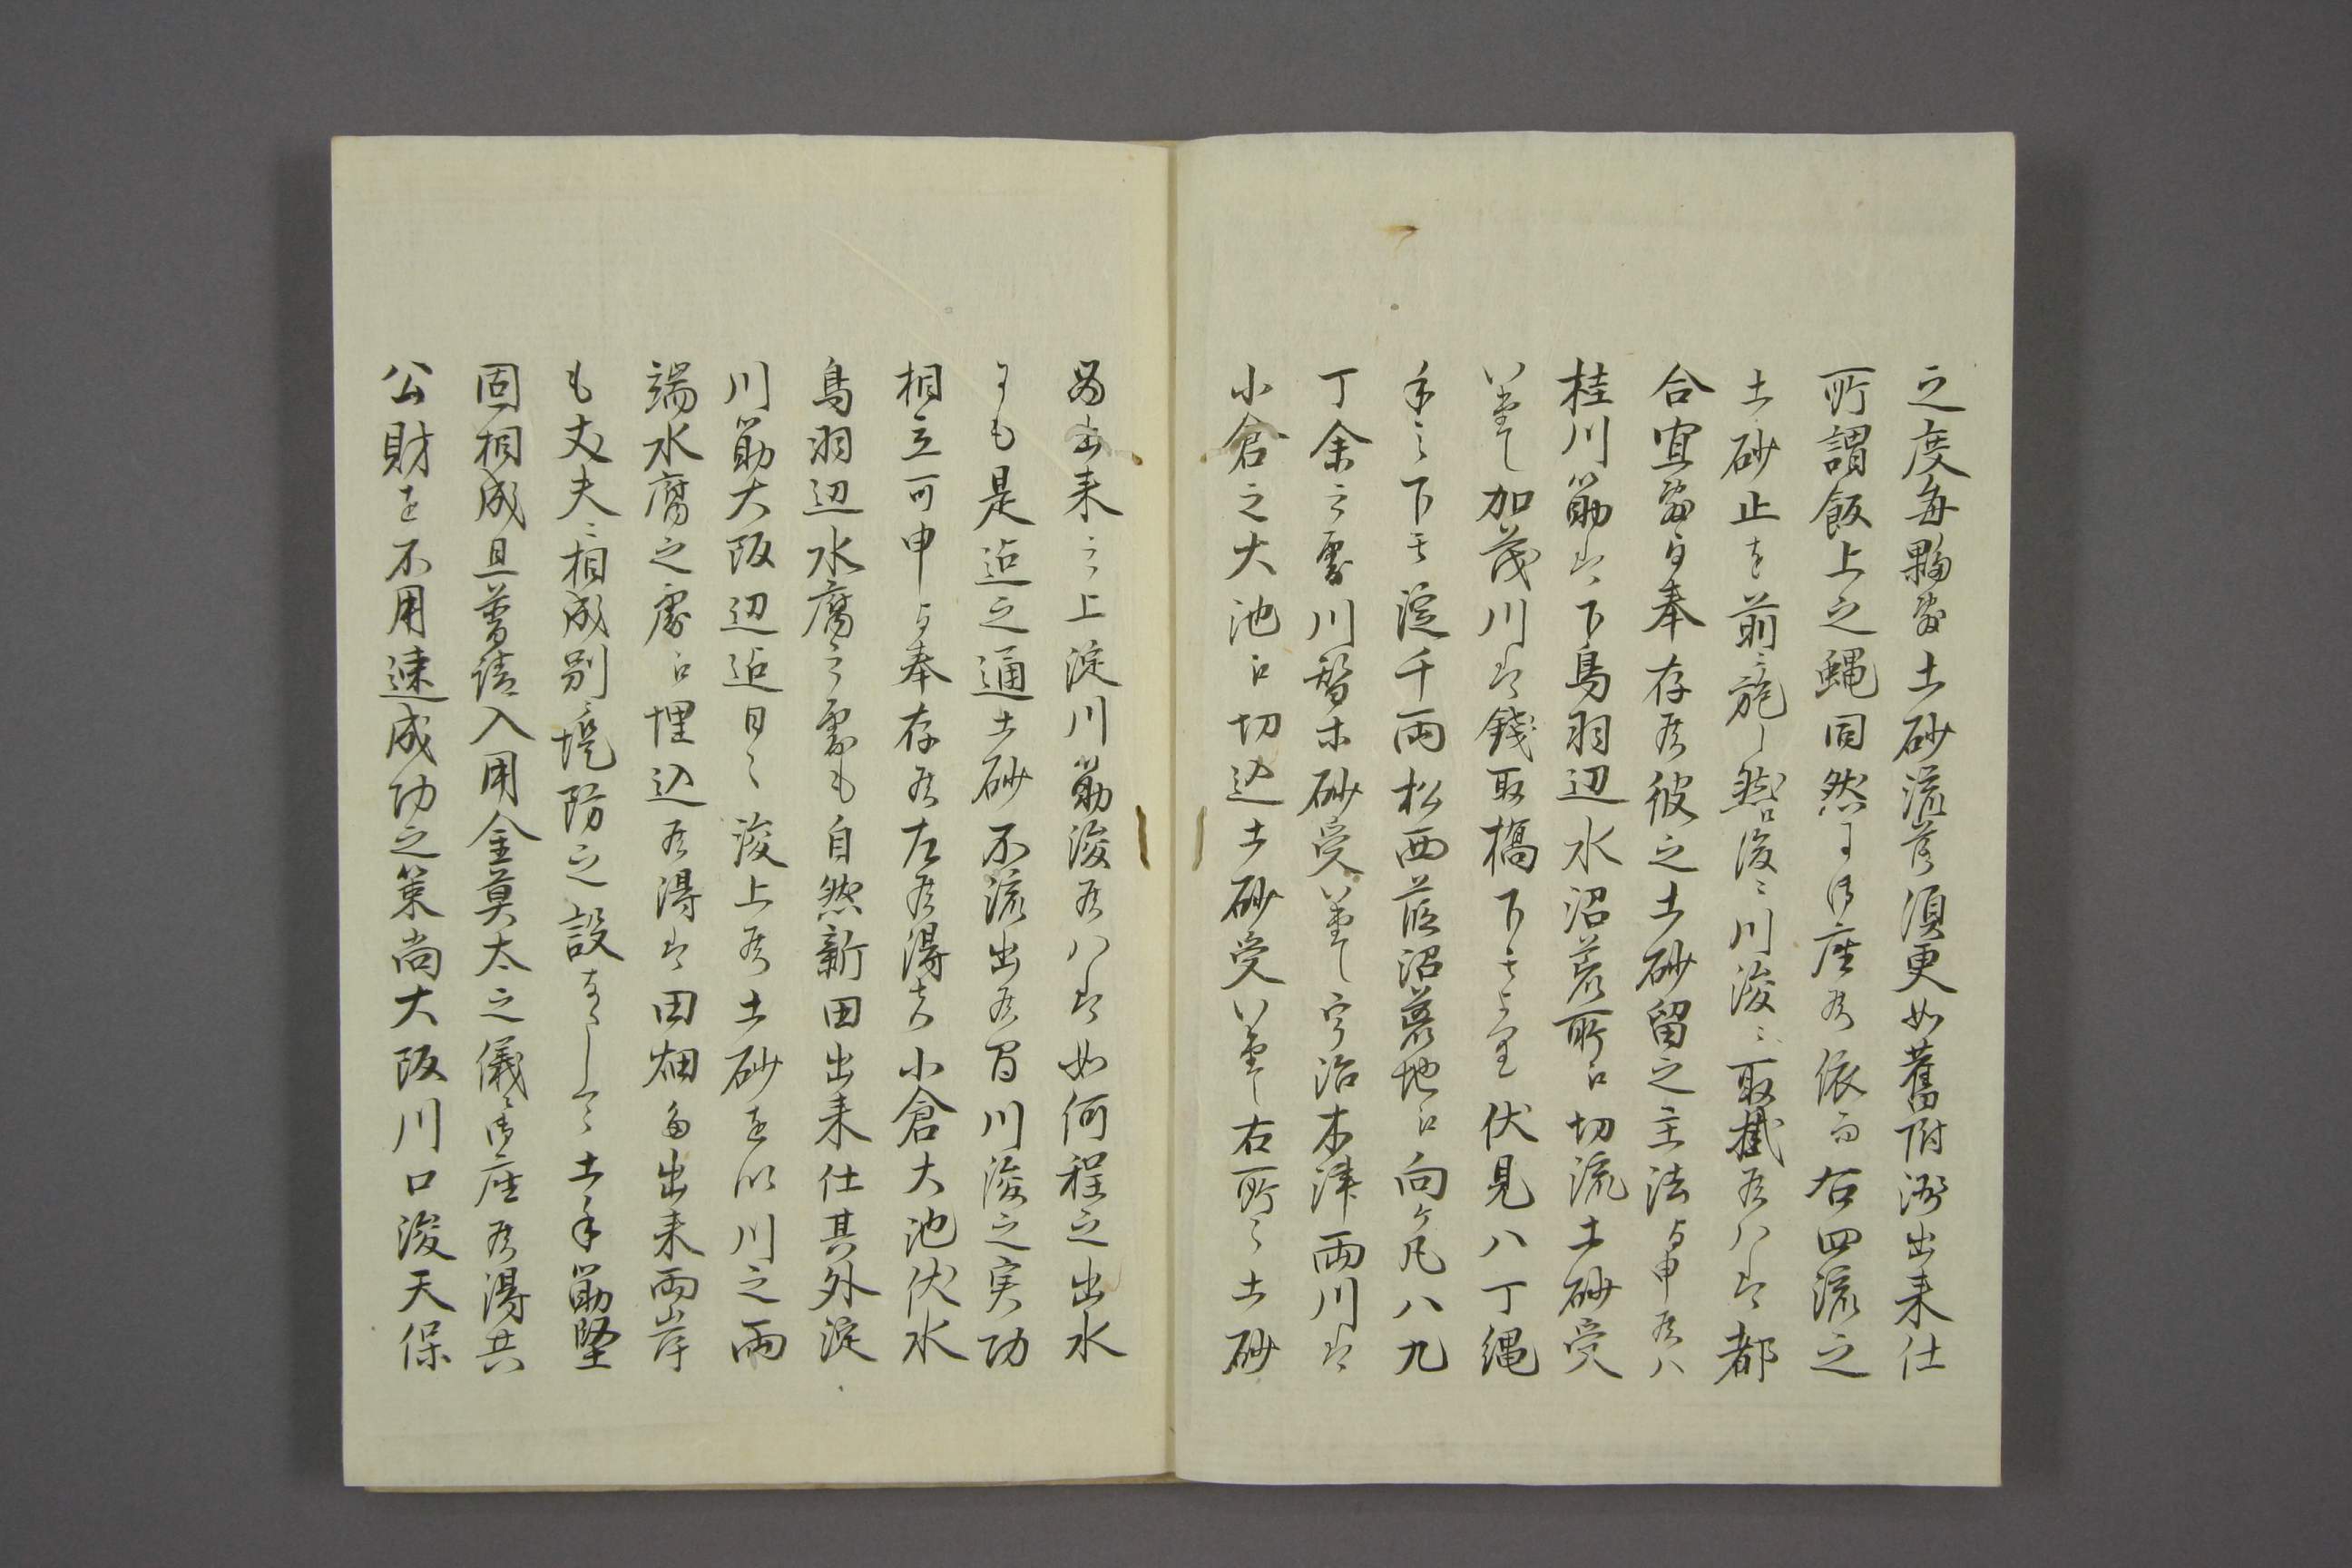 之度毎夥敷土砂流落須更如舊附洲出来仕
所謂飯上之蝿同然ニ御座候依而右四流之
土砂止を前ニ施し然ル後ニ川浚ニ取掛候ハヽ都
合宜敷与奉存候彼之土砂留之主法与申候ハ
桂川筋ハ下鳥羽辺水沼荒所江切流土砂受
ニいたし加茂川ハ銭取橋下モより伏見八丁縄
手之下モ淀千両松西葭沼荒地江向ケ凡八九
丁余之処川替木砂受ニいたし宇治木津両川ハ
小倉之大池江切込土砂受ニいたし右所々土砂
留出来之上淀川筋浚候ハヽ如何程之出水
ニも是迄之通土砂不流出候間川浚之実功
相立可申与奉存候左候得者小倉大池伏水
鳥羽辺水腐之処も自然新田出来仕其外淀
川筋大阪辺迄日々浚上候土砂を以川之両
端水腐之処江埋込候得ハ田畑多出来両岸
も丈夫ニ相成別ニ堤防之設なしニ土手筋堅
固相成且普請入用金莫太之儀ニ御座候得共
公財を不用速成功之策尚大阪川口浚天保